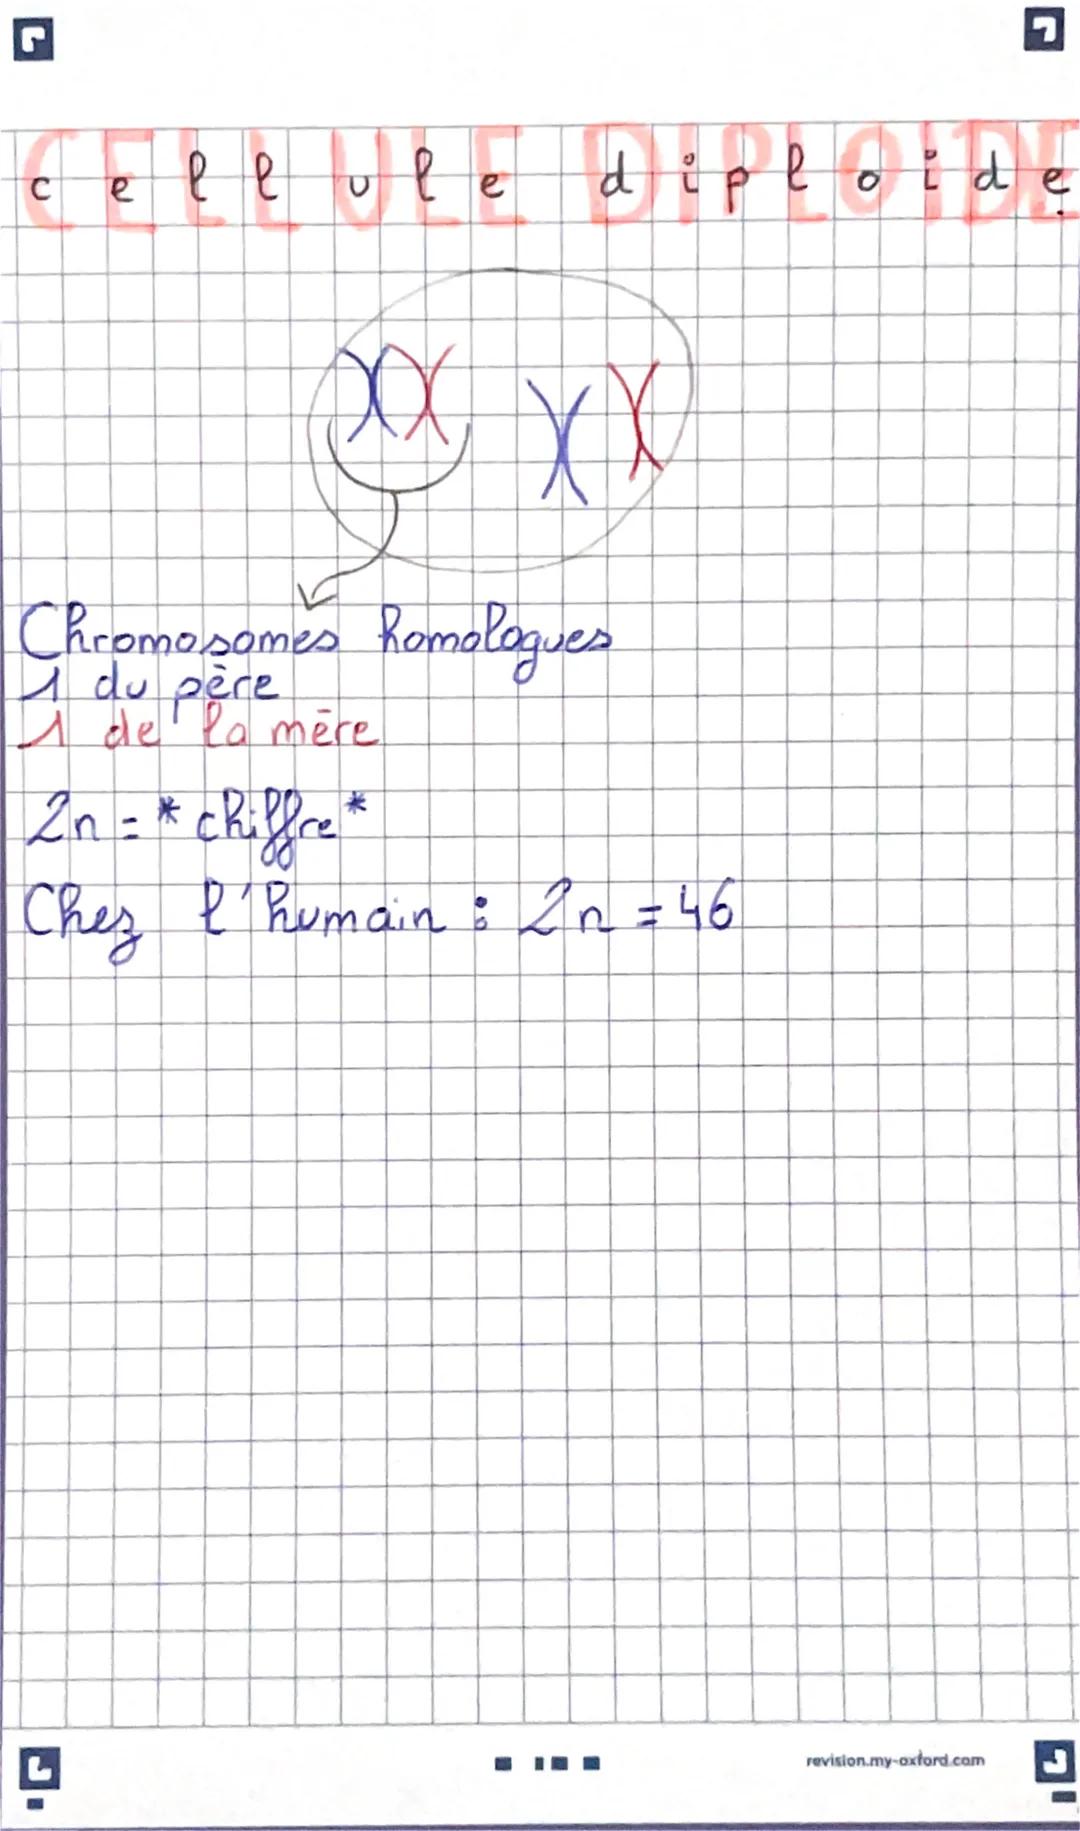 CELLULE DIPLOIDE
cellule diploide
Chromosomes homologues
1 du père
1 de la mère
2n = * chiffre *
Chez l'humain : 2n = 46
revision.my-oxford.com